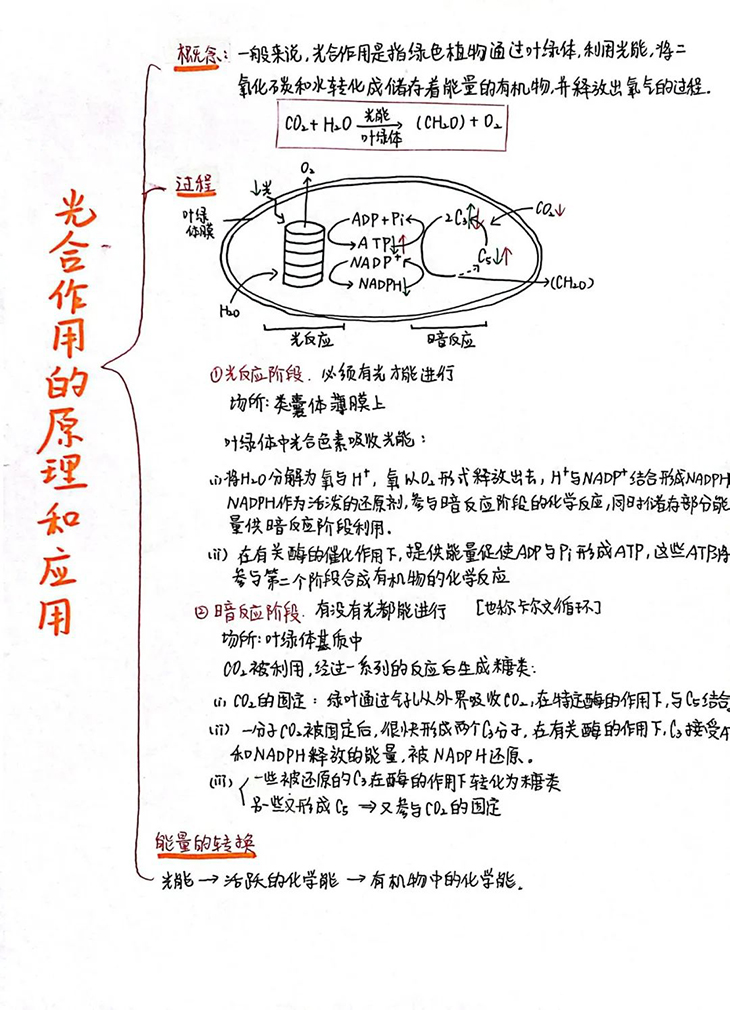 光合作用的原理和应用
概念：一般来说，光合作用是指绿色植物通过叶绿体，利用光能，将二
氧化碳和水转化成储存着能量的有机物，并释放出氧气的过程．
光能
CO₂+H₂O → (CH₂O)+O₂
叶绿体
过程
O₂
↓光
叶绿
体膜
ADP+Pi
2C₃↑↓
CO₂↓
ATP↓↑
NADP⁺
C₅↓↑
NADPH↓
(CH₂O)
H₂O
光反应
暗反应
①光反应阶段．必须有光才能进行
场所：类囊体薄膜上
叶绿体中光合色素吸收光能：
(i)将H₂O分解为氧与H⁺，氧以O₂形式释放出去，H⁺与NADP⁺结合形成NADPH
NADPH作为活泼的还原剂，参与暗反应阶段的化学反应，同时储存部分能
量供暗反应阶段利用．
(ii) 在有关酶的催化作用下，提供能量促使ADP与Pi形成ATP，这些ATP将
参与第二个阶段合成有机物的化学反应
②暗反应阶段．有没有光都能进行 [也称卡尔文循环]
场所：叶绿体基质中
CO₂被利用，经过一系列的反应后生成糖类：
(i) CO₂的固定：绿叶通过气孔从外界吸收CO₂，在特定酶的作用下，与C₅结合
(ii) 一分子CO₂被固定后，很快形成两个C₃分子，在有关酶的作用下，C₃接受A
和NADPH释放的能量，被NADPH还原．
(iii) 一些被还原的C₃在酶的作用下转化为糖类
另一些又形成C₅ ⇒ 又参与CO₂的固定
能量的转换
光能→活跃的化学能→有机物中的化学能．